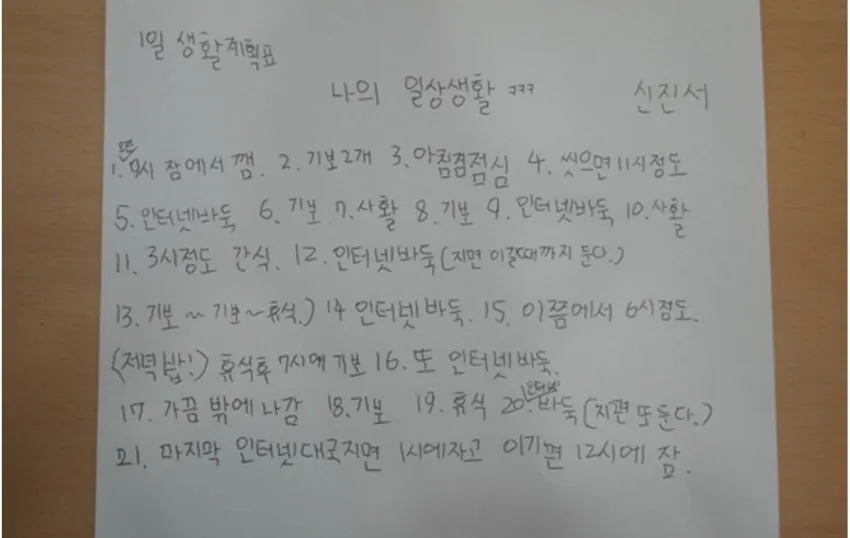 1일 생활계획표
나의 일상생활 ㅋㅋㅋ 신진서
1. 오전 9시 잠에서 깸. 2. 기보2개 3. 아침겸점심 4. 씻으면 11시정도
5. 인터넷바둑 6. 기보 7. 사활 8. 기보 9. 인터넷바둑 10. 사활
11. 3시정도 간식. 12. 인터넷바둑(지면 이길때까지 둔다.)
13. 기보~기보~휴식.) 14 인터넷바둑. 15. 이쯤에서 6시정도.
(저녁밥!) 휴식후 7시에 기보 16. 또 인터넷바둑.
17. 가끔 밖에 나감 18. 기보 19. 휴식 20. 인터넷바둑(지편 또 둔다.)
21. 마지막 인터넷대국지면 1시에자고 이기편 12시에 잠.